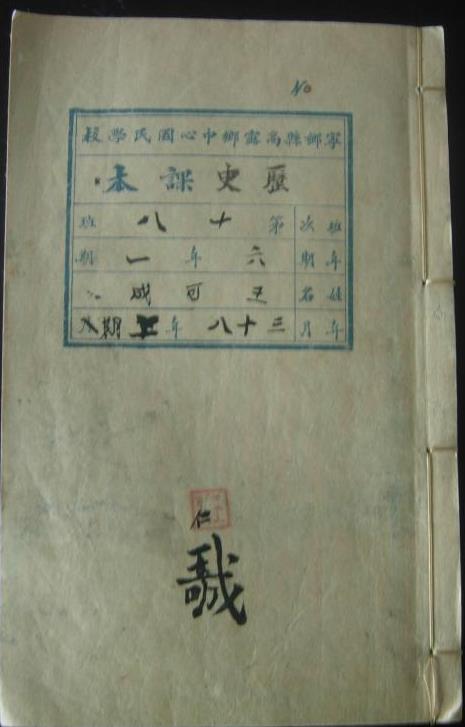 No
寧鄉縣高露鄉中心國民學校
歷史課本
班次 第十八班
年期 六年一期
姓名 王可成
年月 三十八年上期
仁